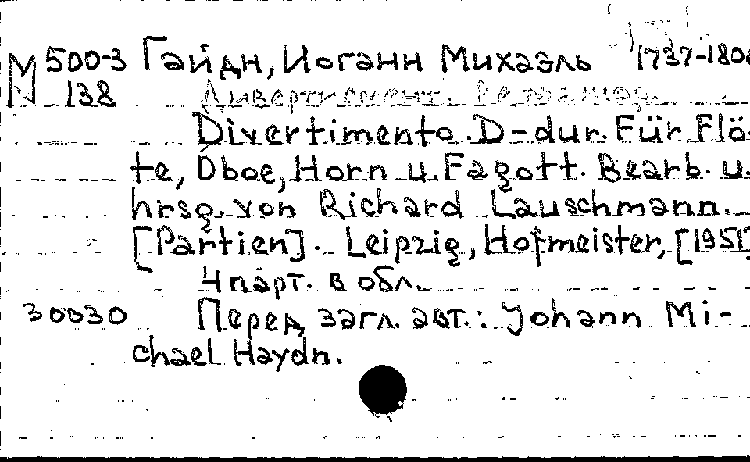 М 500-3 Гайдн, Иоганн Михаэль 1737-1806
138 Дивертисмент. Ре мажор.
Divertimento. D-dur. Für Flö-
te, Oboe, Horn u. Fagott. Bearb. u.
hrsg. von Richard Lauschmann.
[Partien]. Leipzig, Hofmeister, [1951]
4 парт. в обл.
30030 Перед загл. авт.: Johann Mi-
chael Haydn.